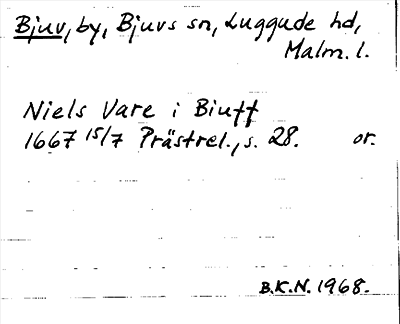 Bjuv, by, Bjuvs sn, Luggude hd,
Malm. l.
Niels Vare i Biuff
1667 15/7 Prästrel., s. 28. or.
B.K.N. 1968.